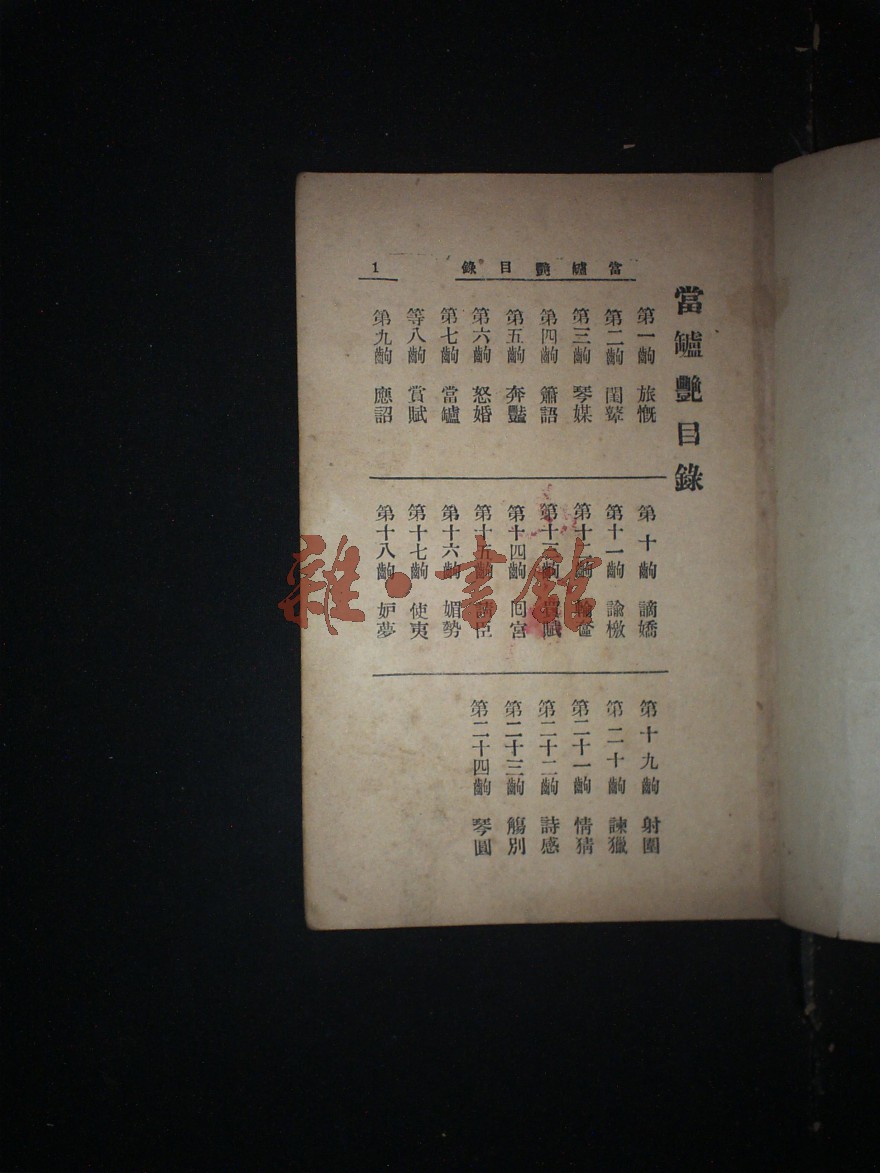 當鑪艷目錄
當鑪艷目錄
1
第一齣 旅慨
第二齣 閨顰
第三齣 琴媒
第四齣 簫語
第五齣 奔豔
第六齣 怒婚
第七齣 當鑪
等八齣 賞賦
第九齣 應詔
第十齣 謫嬌
第十一齣 諭檄
第十二齣
第十三齣 買賦
第十四齣 囘宮
第十五齣
第十六齣 媚勢
第十七齣 使夷
第十八齣 妒夢
第十九齣 射圍
第二十齣 諫獵
第二十一齣 情猜
第二十二齣 詩感
第二十三齣 觴別
第二十四齣 琴圓
雜·書館